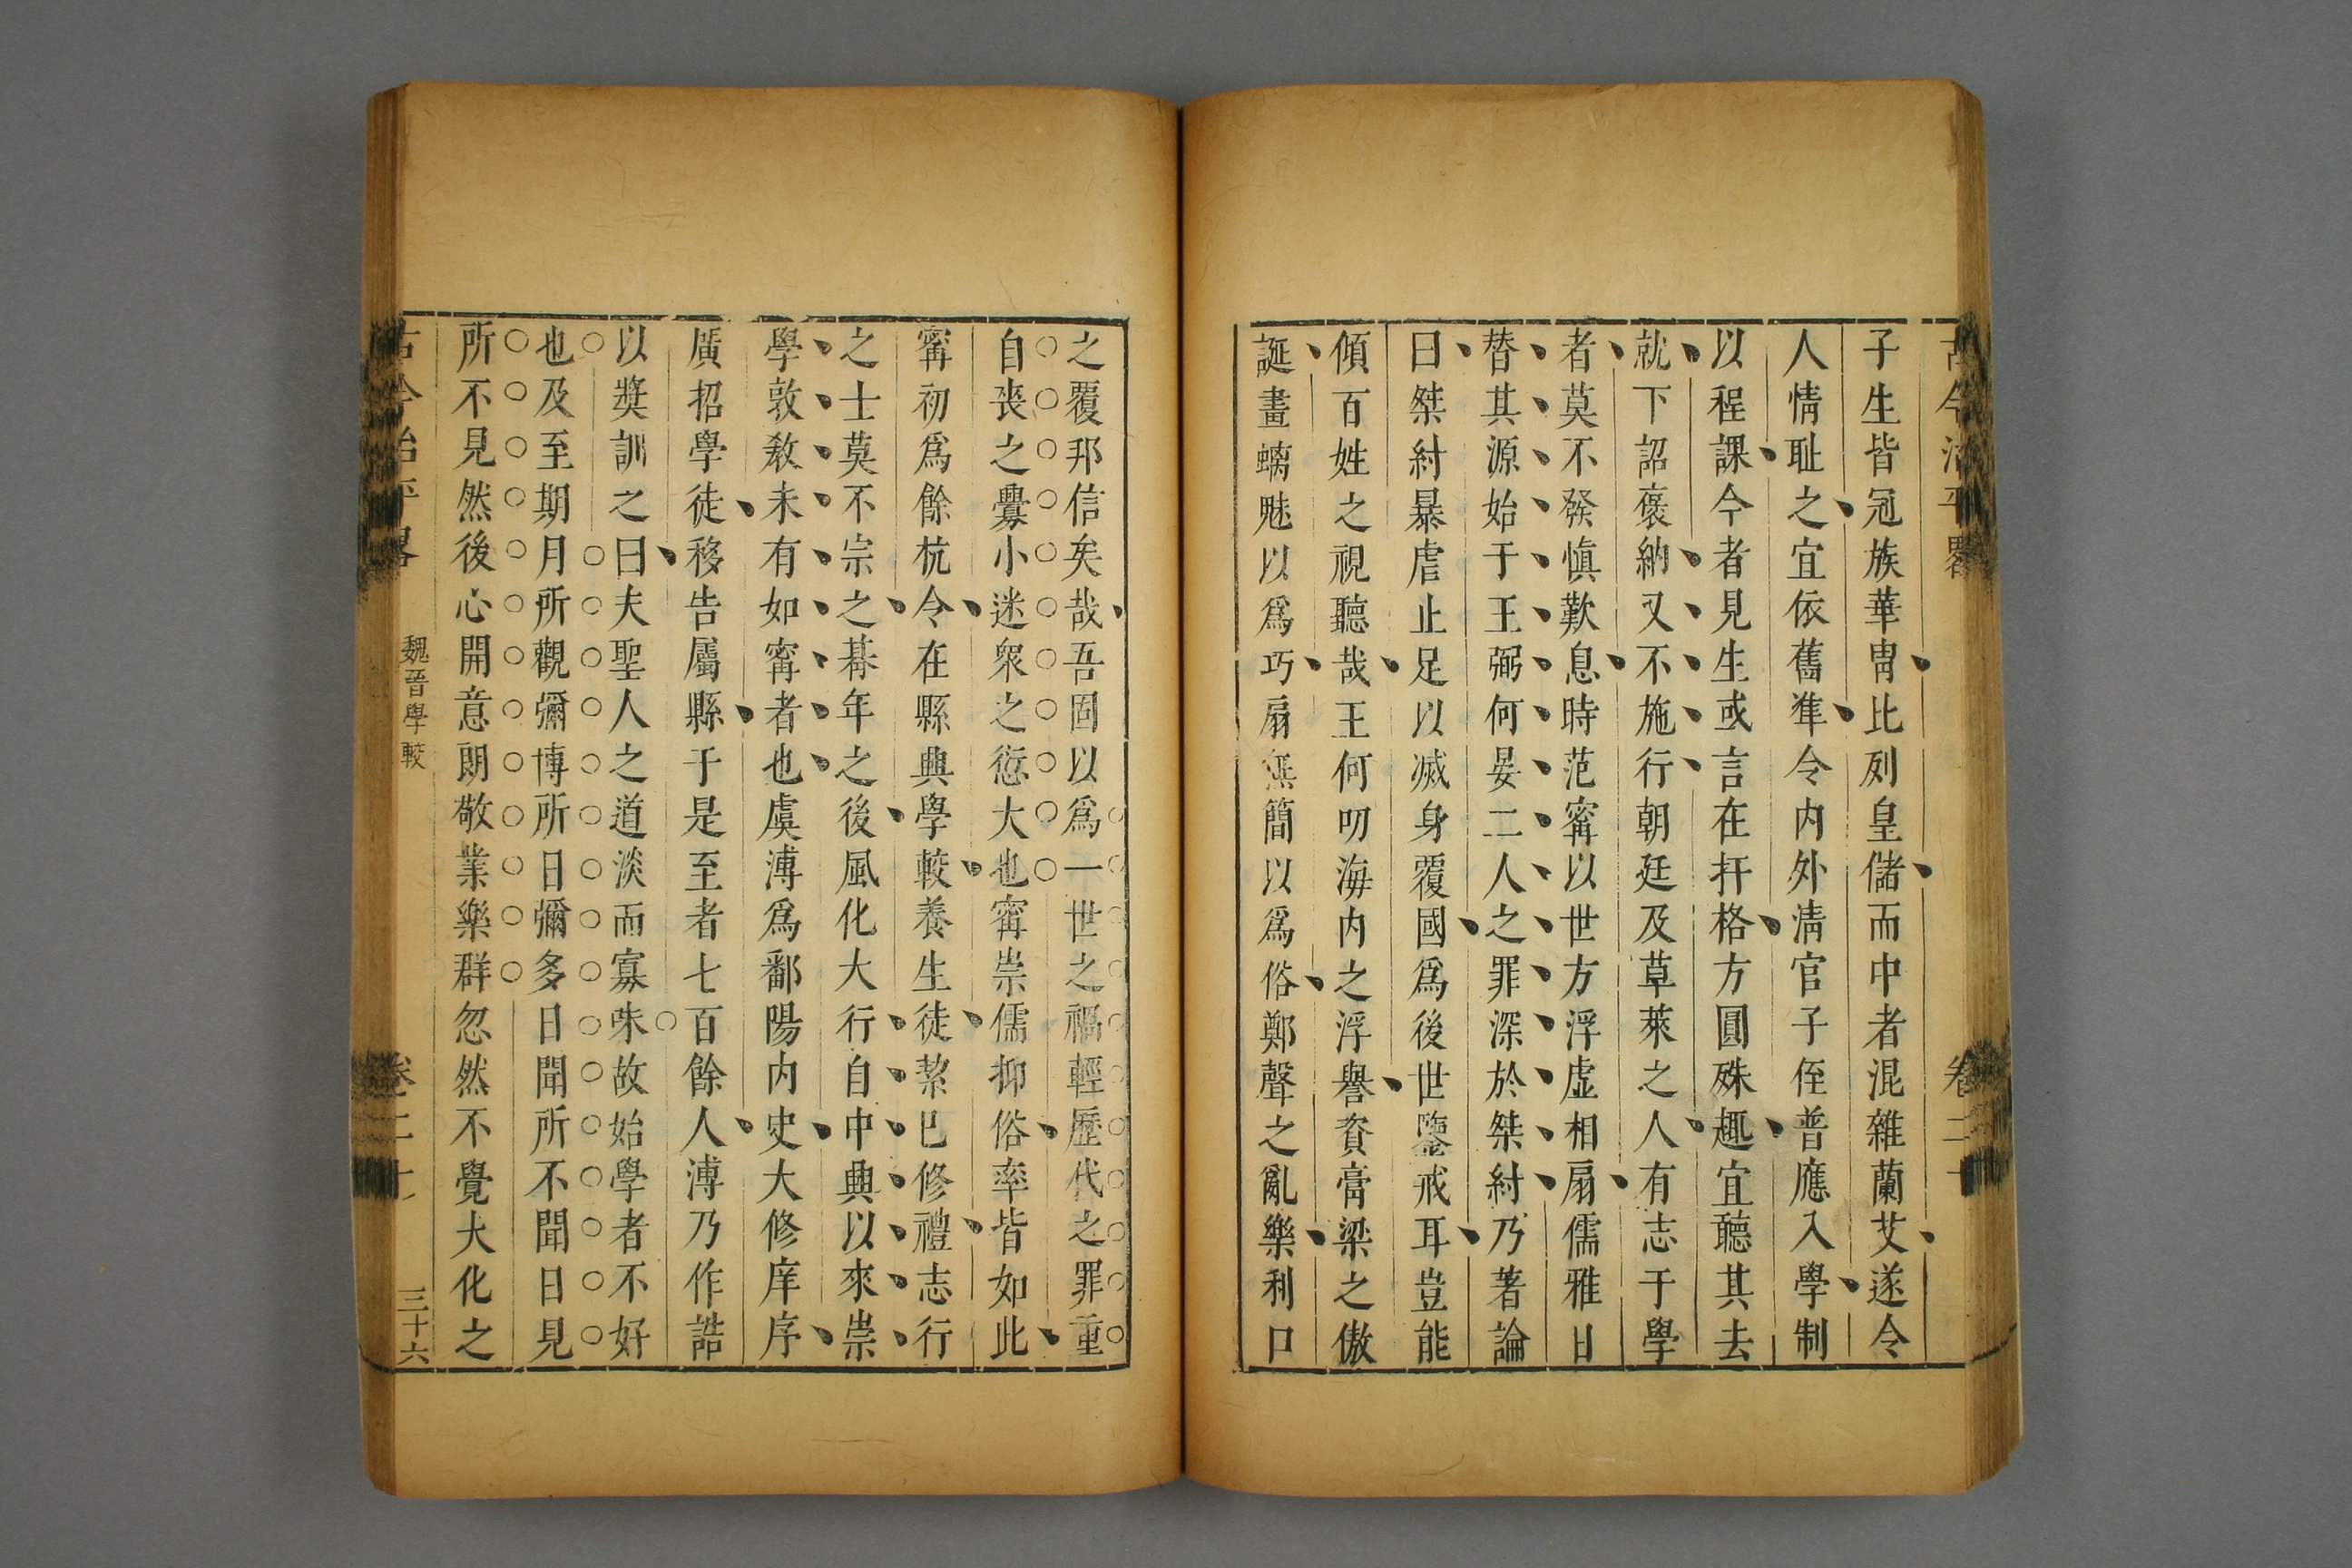 古今治平畧
卷二十
子生皆冠族華冑比列皇儲而中者混雜蘭艾遂令
人情耻之宜依舊準令內外清官子侄普應入學制
以程課今者見生或言在扞格方圓殊趣宜聽其去
就下詔褒納又不施行朝廷及草萊之人有志于學
者莫不發慎歎息時范甯以世方浮虛相扇儒雅日
替其源始于王弼何晏二人之罪深於桀紂乃著論
曰桀紂暴虐止足以滅身覆國爲後世鑒戒耳豈能
傾百姓之視聽哉王何叨海内之浮譽資膏梁之傲
誕畫螭魅以爲巧扇無簡以爲俗鄭聲之亂樂利口
之覆邦信矣哉吾固以爲一世之禍輕歷代之罪重
自喪之釁小迷衆之愆大也甯崇儒抑俗率皆如此
甯初爲餘杭令在縣興學較養生徒絜已修禮志行
之士莫不宗之朞年之後風化大行自中興以來崇
學敦敎未有如甯者也虞溥爲鄱陽内史大修庠序
廣招學徒移告屬縣于是至者七百餘人溥乃作誥
以奬訓之曰夫聖人之道淡而寡味故始學者不好
也及至期月所觀彌博所日彌多日聞所不聞日見
所不見然後心開意朗敬業樂群忽然不覺大化之
古今治平畧
魏晉學較
卷二十
三十六